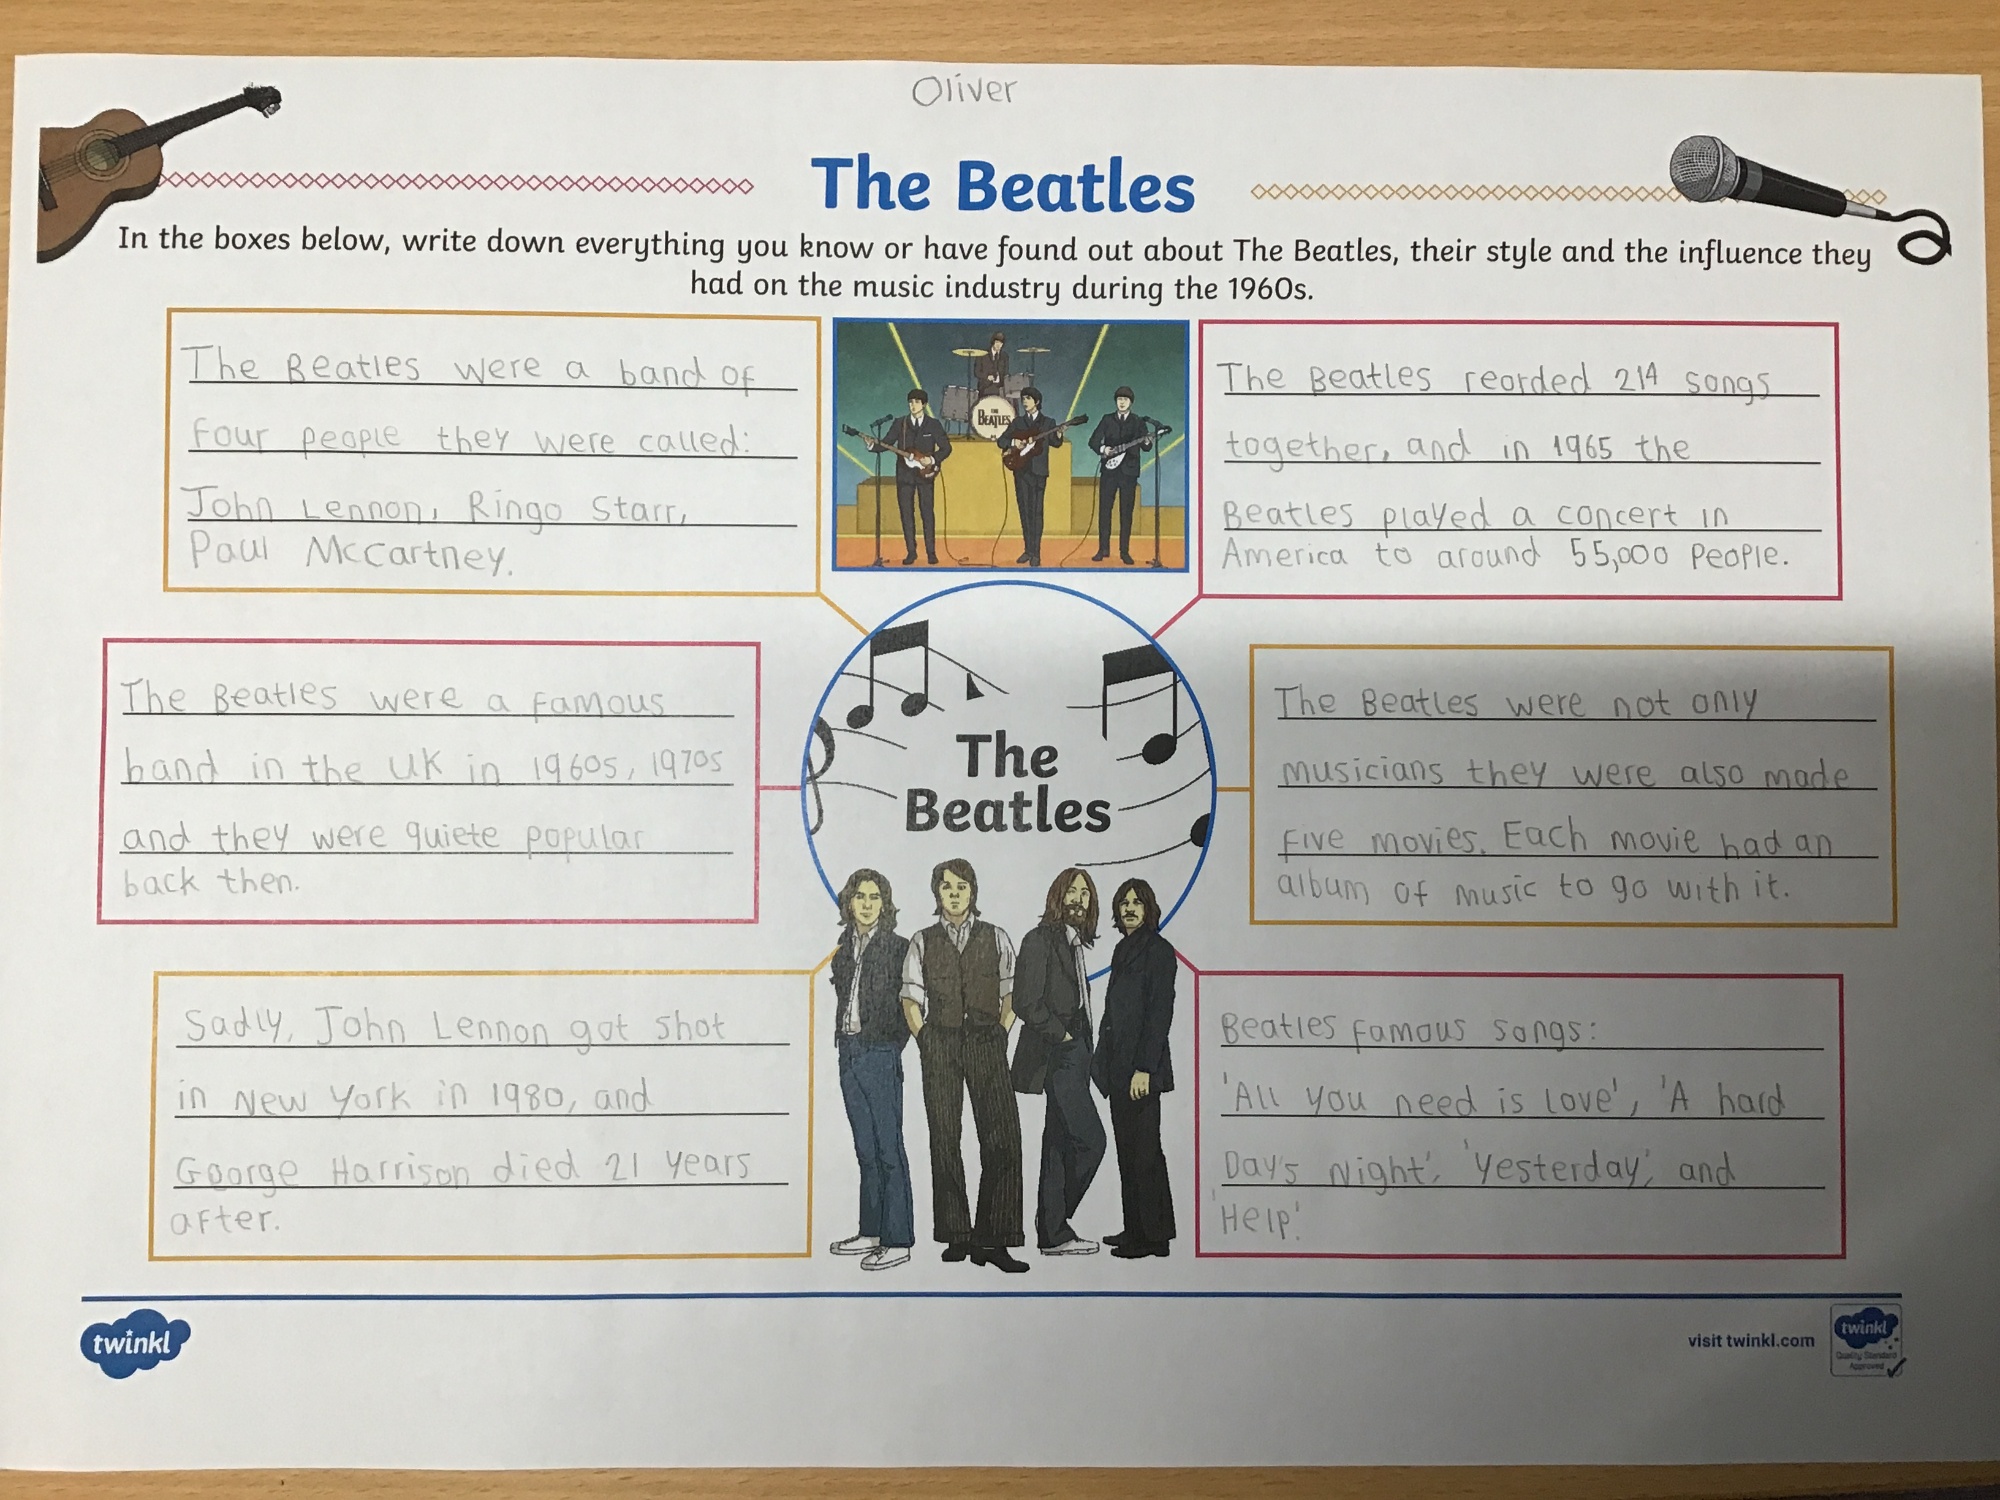 Oliver
The Beatles
In the boxes below, write down everything you know or have found out about The Beatles, their style and the influence they
had on the music industry during the 1960s.
The Beatles were a band of
four people they were called:
John Lennon, Ringo Starr,
Paul McCartney.
THE BEATLES
The Beatles reorded 214 songs
together, and in 1965 the
Beatles played a concert in
America to around 55,000 people.
The Beatles were a famous
band in the UK in 1960s, 1970s
and they were quiete popular
back then.
The
Beatles
The Beatles were not only
musicians they were also made
five movies. Each movie had an
album of music to go with it.
Sadly, John Lennon got shot
in New York in 1980, and
Goorge Harrison died 21 years
after.
Beatles famous songs:
'All you need is love', 'A hard
Day's Night', 'Yesterday', and
'Help'.
twinkl
visit twinkl.com
twinkl
Quality Standard
Approved